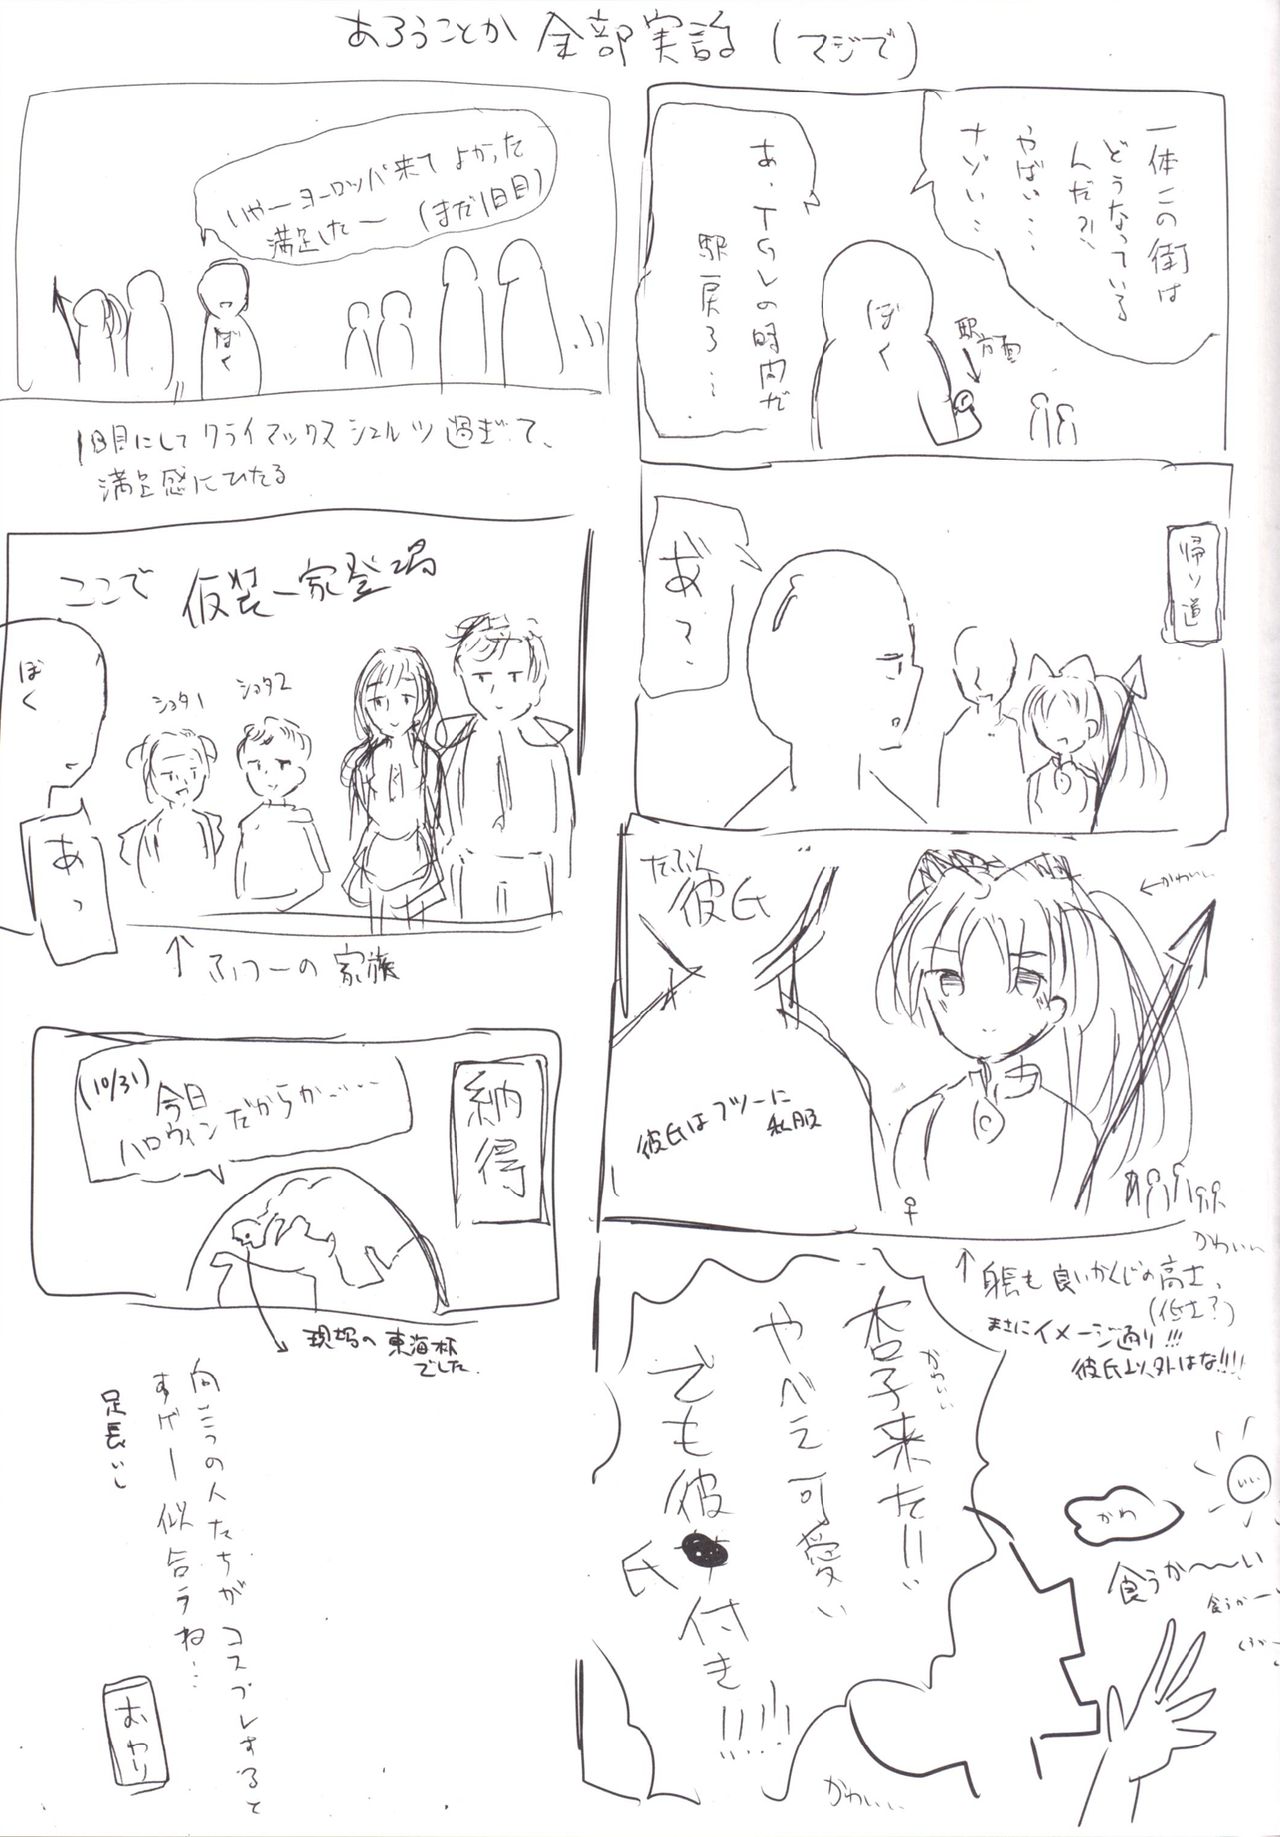 あろうことか 全部実話 (マジで)
一体この街は
どうなっている
んだ?!
やばい…
ナゾい…
あ、TGVの時間だ
駅戻ろ…
ぼく
駅方面
帰り道
あ?
たぶん
彼氏
←かわいい
彼氏はフツーに
私服
↑身長も良いかんじの高さ、
(低さ?)
まさにイメージ通り!!!
彼氏以外はな!!!!
かわいい
杏子来た!!
かわいい
やべえ可愛い
でも彼氏付き!!!!
かわ
いい
食うか〜〜い
食うかーい
かわいい
いやーヨーロッパ来てよかった
満足したー (まだ1日目)
ぼく
1日目にしてクライマックスシュルツ過ぎて、
満足感にひたる
ここで 仮装一家登場
ぼく
ショタ1
ショタ2
あっ
↑ふつーの家族
納得
(10/31)
今日
ハロウィンだからか……
現場の東海林
でした
向こうの人たちがコスプレすると
すげー似合うね…
足長いし
おわり